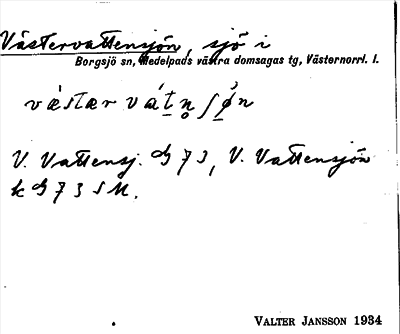 Västervattensjön, sjö i
Borgsjö sn, Medelpads västra domsagas tg, Västernorrl. l.
væ̀stær vát̲n̥ ʃø̲̉n
V. Vattensj. G 73, V. Vattensjön
k G 73 S M.
VALTER JANSSON 1934